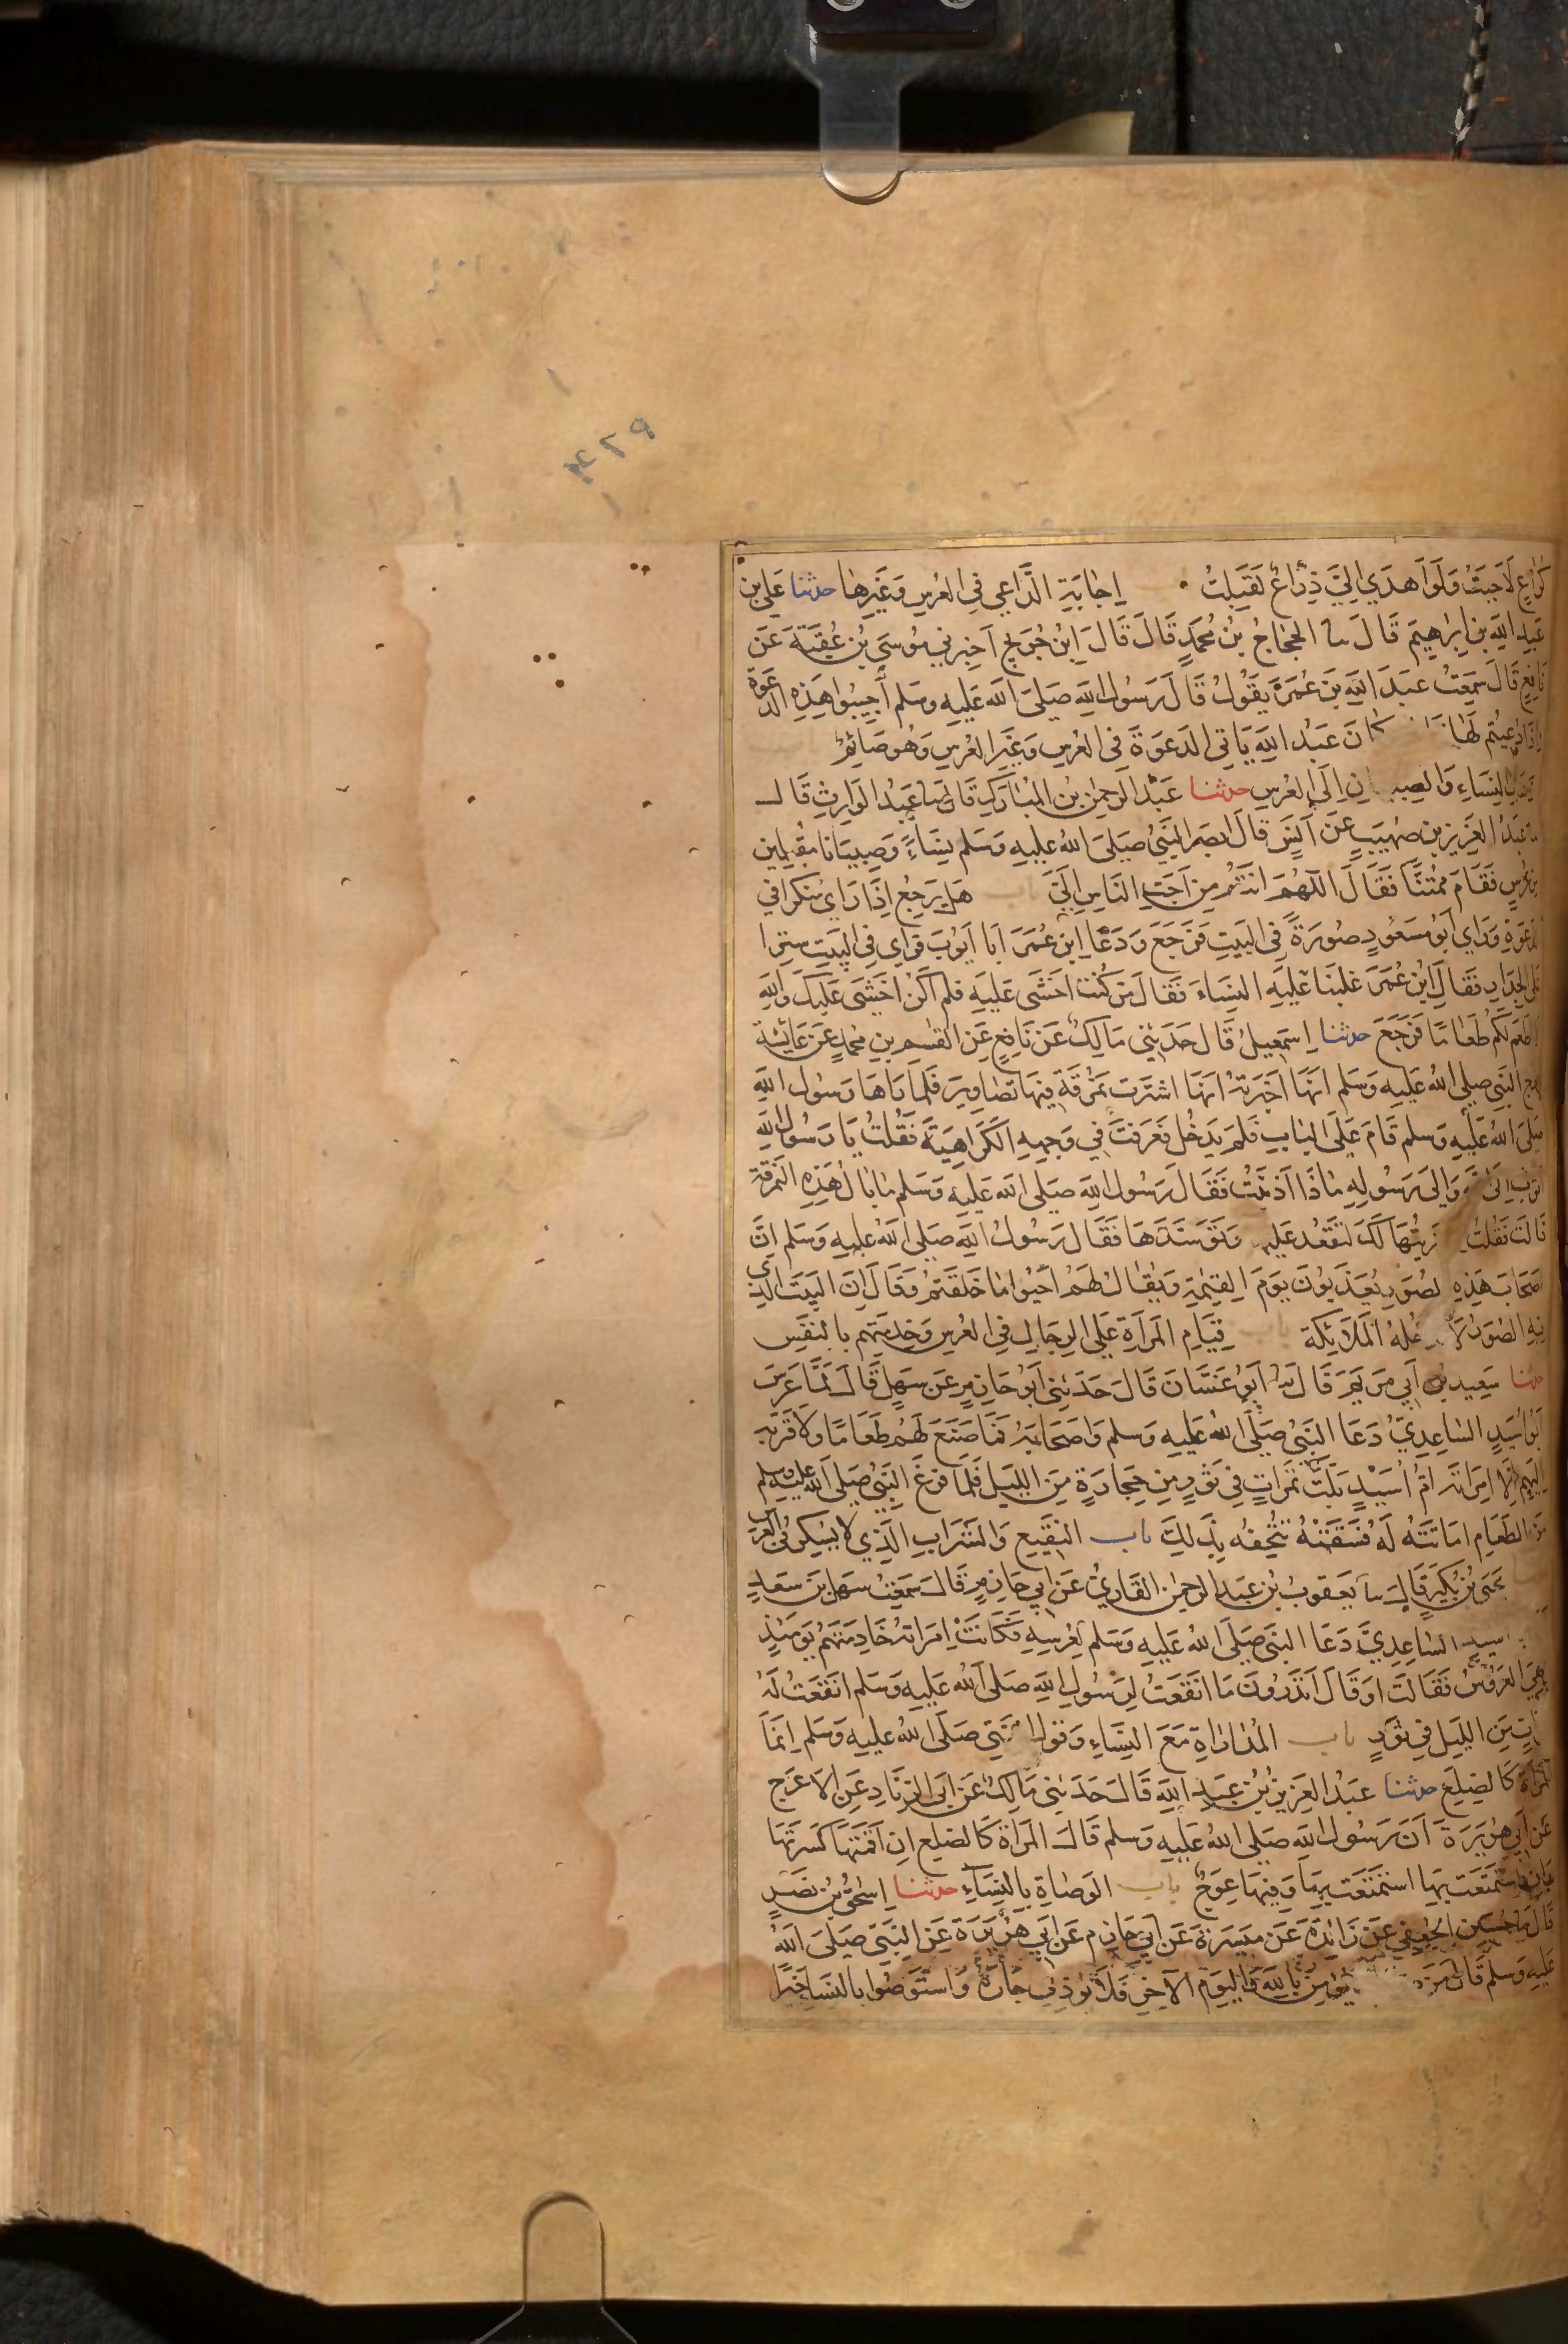 ٤٢٩
كراع لاجبت ولو اهدي الي ذراع لقبلت اجابة الداعي في العرس وغيرها حدثنا علي بن
عبد الله بن ابراهيم قال سا الحجاج بن محمد قال قال ابن جريج اخبرني موسى بن عقبة عن
نافع قال سمعت عبد الله بن عمر يقول قال رسول الله صلى الله عليه وسلم أجيبوا هذه الدعوة
اذا دعيتم لها كان عبد الله ياتي الدعوة في العرس وغير العرس وهو صائم
النساء والصبيان الى العرس حدثنا عبد الرحمن بن المبارك قال سا عبد الوارث قال
سا عبد العزيز بن صهيب عن انس قال ابصر النبي صلى الله عليه وسلم نساء وصبيانا مقبلين
من عرس فقام ممتنا فقال اللهم انتم من احب الناس الي باب هل يرجع اذا راى منكرا في
الدعوة وراي ابو مسعود صورة في البيت فرجع ودعا ابن عمر ابا ايوب فراي في البيت سترا
على الجدار فقال ابن عمر غلبنا عليه النساء فقال من كنت اخشى عليه فلم اكن اخشى عليك والله
لا اطعم لكم طعاما فرجع حدثنا اسمعيل قال حدثني مالك عن نافع عن القسم بن محمد عن عائشة
زوج النبي صلى الله عليه وسلم انها اخبرته انها اشترت نمرقة فيها تصاوير فلما راها رسول الله
صلى الله عليه وسلم قام على الباب فلم يدخل فعرفت في وجهه الكراهية فقلت يا رسول الله
اتوب الى الله والى رسوله ماذا اذنبت فقال رسول الله صلى الله عليه وسلم ما بال هذه النمرقة
قالت فقلت اشتريتها لك لتقعد عليها وتوسدها فقال رسول الله صلى الله عليه وسلم ان
اصحاب هذه الصور يعذبون يوم القيمة ويقال لهم احيوا ما خلقتم وقال ان البيت الذي
فيه الصور لا تدخله الملائكة قيام المراة على الرجال في العرس وخدمتهم بالنفس
حدثنا سعيد بن ابي مريم قال سا ابو غسان قال حدثني ابو حازم عن سهل قال لما عرس
ابو اسيد الساعدي دعا النبي صلى الله عليه وسلم واصحابه فما صنع لهم طعاما ولا قربه
اليهم الا امراته ام أسيد بلت تمرات في تور من حجارة من الليل فلما فرغ النبي صلى الله عليه وسلم
من الطعام اماثته له فسقته تتحفه بذلك باب النقيع والشراب الذي لا يسكر في العرس
يحيى بن بكير قال سا يعقوب بن عبد الرحمن القاري عن ابي حازم قال سمعت سهل بن سعد
اسيد الساعدي دعا النبي صلى الله عليه وسلم لعرسه فكانت امراته خادمتهم يومئذ
وهي العروس فقالت او قال اتدرون ما انقعت لرسول الله صلى الله عليه وسلم انقعت له
تمرات من الليل في تور باب المداراة مع النساء وقول النبي صلى الله عليه وسلم انما
المراة كالضلع حدثنا عبد العزيز بن عبد الله قال حدثني مالك عن ابي الزناد عن الاعرج
عن ابي هريرة ان رسول الله صلى الله عليه وسلم قال المراة كالضلع ان اقمتها كسرتها
وان استمتعت بها استمتعت بها وفيها عوج باب الوصاة بالنساء حدثنا اسحق بن نصر
قال سا حسين الجعفي عن زائدة عن ميسرة عن ابي حازم عن ابي هريرة عن النبي صلى الله
عليه وسلم قال من يؤمن بالله واليوم الآخر فلا يوذي جاره واستوصوا بالنساء خيرا